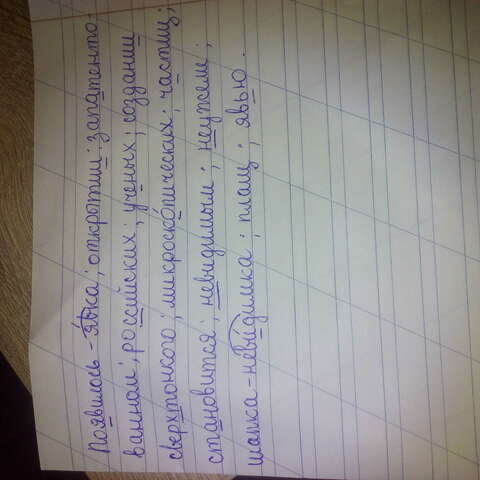 Появилось - явка; открытии; запатенто-
ванном; российских; ученых; создании
сверхтонкого; микроскопических; частиц;
становится; невидимым; неужели;
шапка - невидимка; плащ; явью.